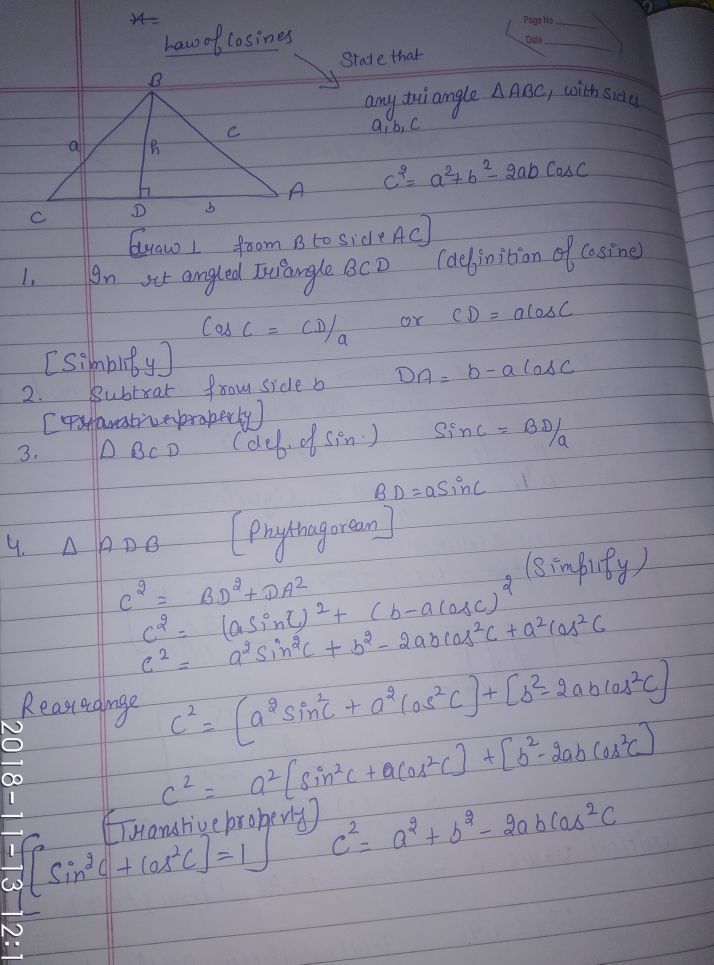 Law of Cosines
Page No
Date
State that
any triangle ΔABC, with sides
a, b, c
c² = a² + b² - 2ab Cos C
B
a
h
c
C
D
b
A
[Draw ⊥ from B to side AC]
1. In rt angled Triangle BCD (definition of Cosine)
Cos C = CD/a or CD = a Cos C
[Simplify]
2. Subtrat from side b DA = b - a Cos C
[Transtive property]
3. Δ BCD (def. of Sin.) Sin C = BD/a
BD = a Sin C
4. Δ ADB [Phythagorean]
c² = BD² + DA²
c² = (a Sin C)² + (b - a Cos C)² (Simplify)
c² = a² Sin²C + b² - 2ab Cos²C + a² Cos²C
Rearrange
c² = [a² Sin²C + a² Cos²C] + [b² - 2ab Cos²C]
c² = a² [Sin²C + a Cos²C] + [b² - 2ab Cos²C]
[Transtive property]
[[Sin²C + Cos²C] = 1] c² = a² + b² - 2ab Cos²C
2018-11-13 12:1